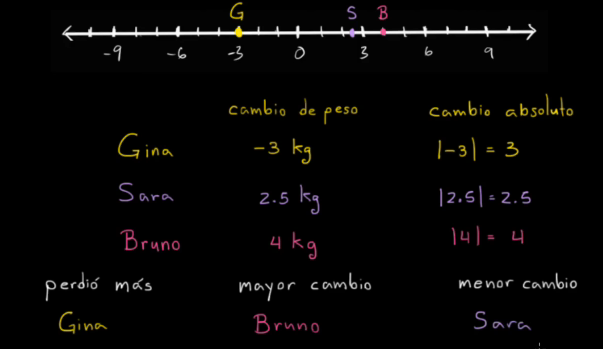 G S B
-9 -6 -3 0 3 6 9
cambio de peso cambio absoluto
Gina -3 kg |-3| = 3
Sara 2.5 kg |2.5| = 2.5
Bruno 4 kg |4| = 4
perdió más mayor cambio menor cambio
Gina Bruno Sara